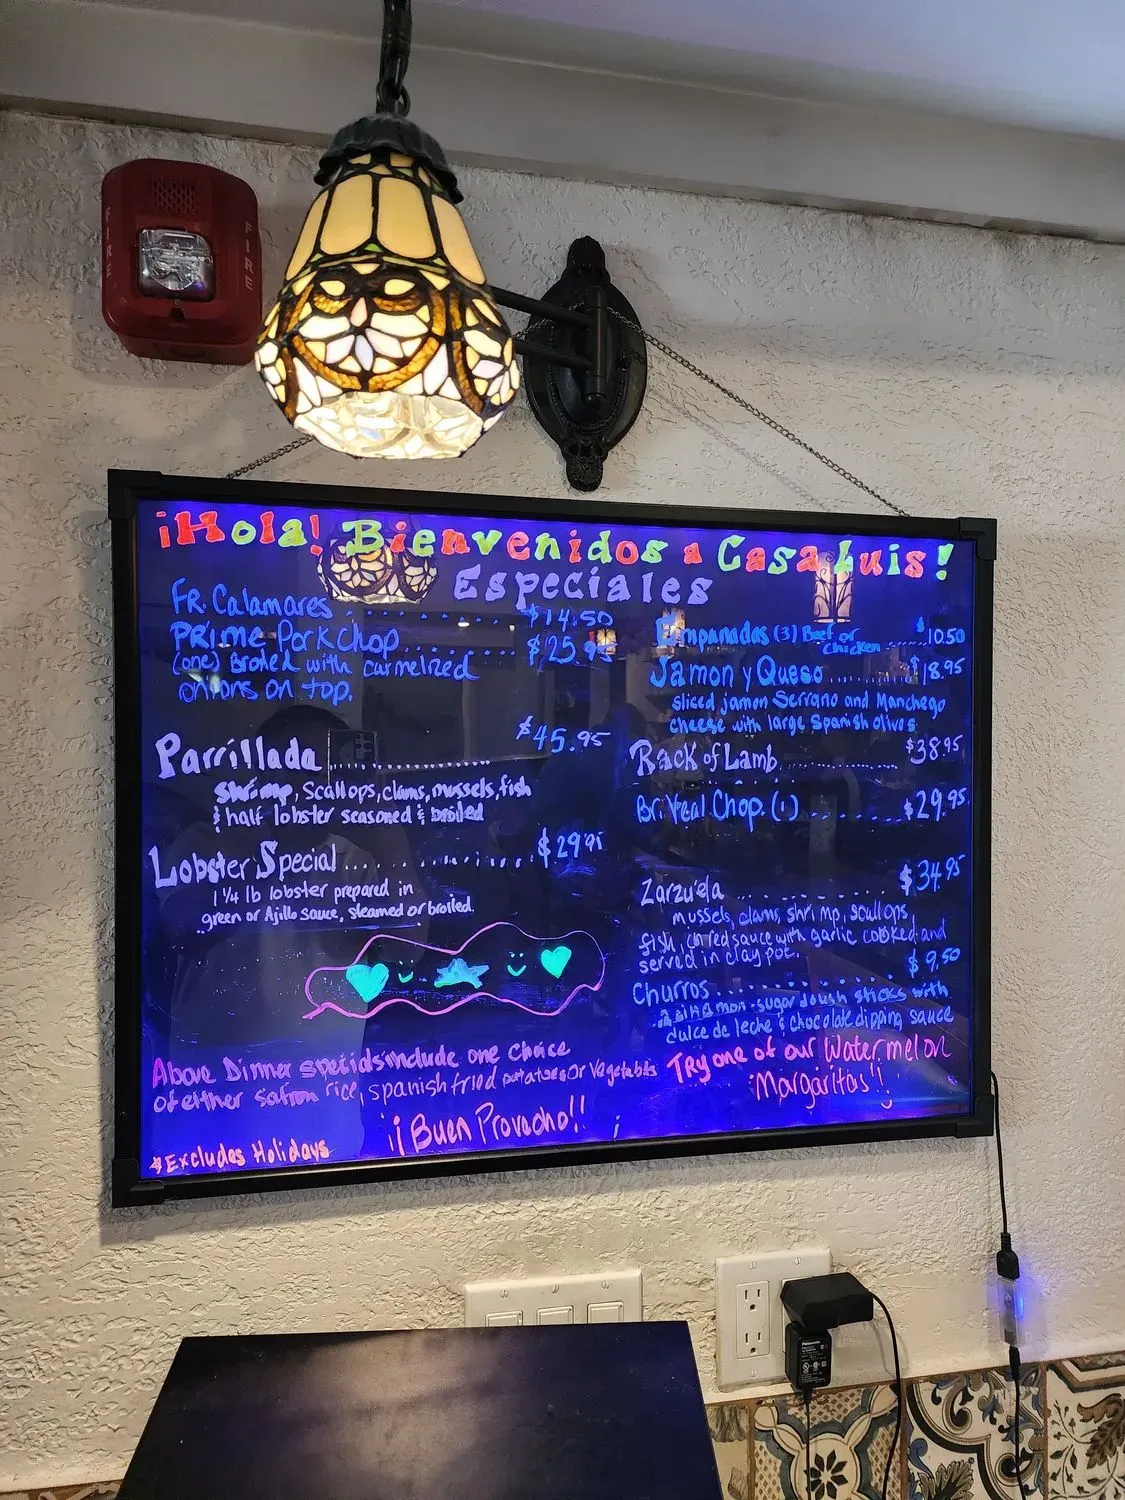 ¡Hola! Bienvenidos a Casa Luis!
Especiales
FR. Calamares ............ $14.50
PRime Pork Chop ......... $25.95
(one) Broiled with carmelized
onions on top.
Parrillada .................... $45.95
Shrimp, scallops, clams, mussels, fish
& half lobster seasoned & broiled
Lobster Special ............... $29.95
1 1/4 lb lobster prepared in
green or Ajillo sauce, steamed or broiled.
Above Dinner specials include one choice
of either safron rice, spanish fried potatoes or Vegetables
¡¡Buen Provecho!!
*Excludes Holidays
Empanadas (3) Beef or
chicken ....... $10.50
Jamon y Queso ............ $18.95
sliced jamon Serrano and Manchego
cheese with large Spanish olives
Rack of Lamb ................ $38.95
Br. Veal Chop. (1) ........... $29.95
Zarzuela ............... $34.95
mussels, clams, shrimp, scallops,
fish, in red sauce with garlic cooked and
served in clay pot.
Churros .............. $9.50
sugar dough sticks with
dulce de leche & chocolate dipping sauce
Try one of our Watermelon
Margaritas!!
FIRE
FIRE
Panasonic